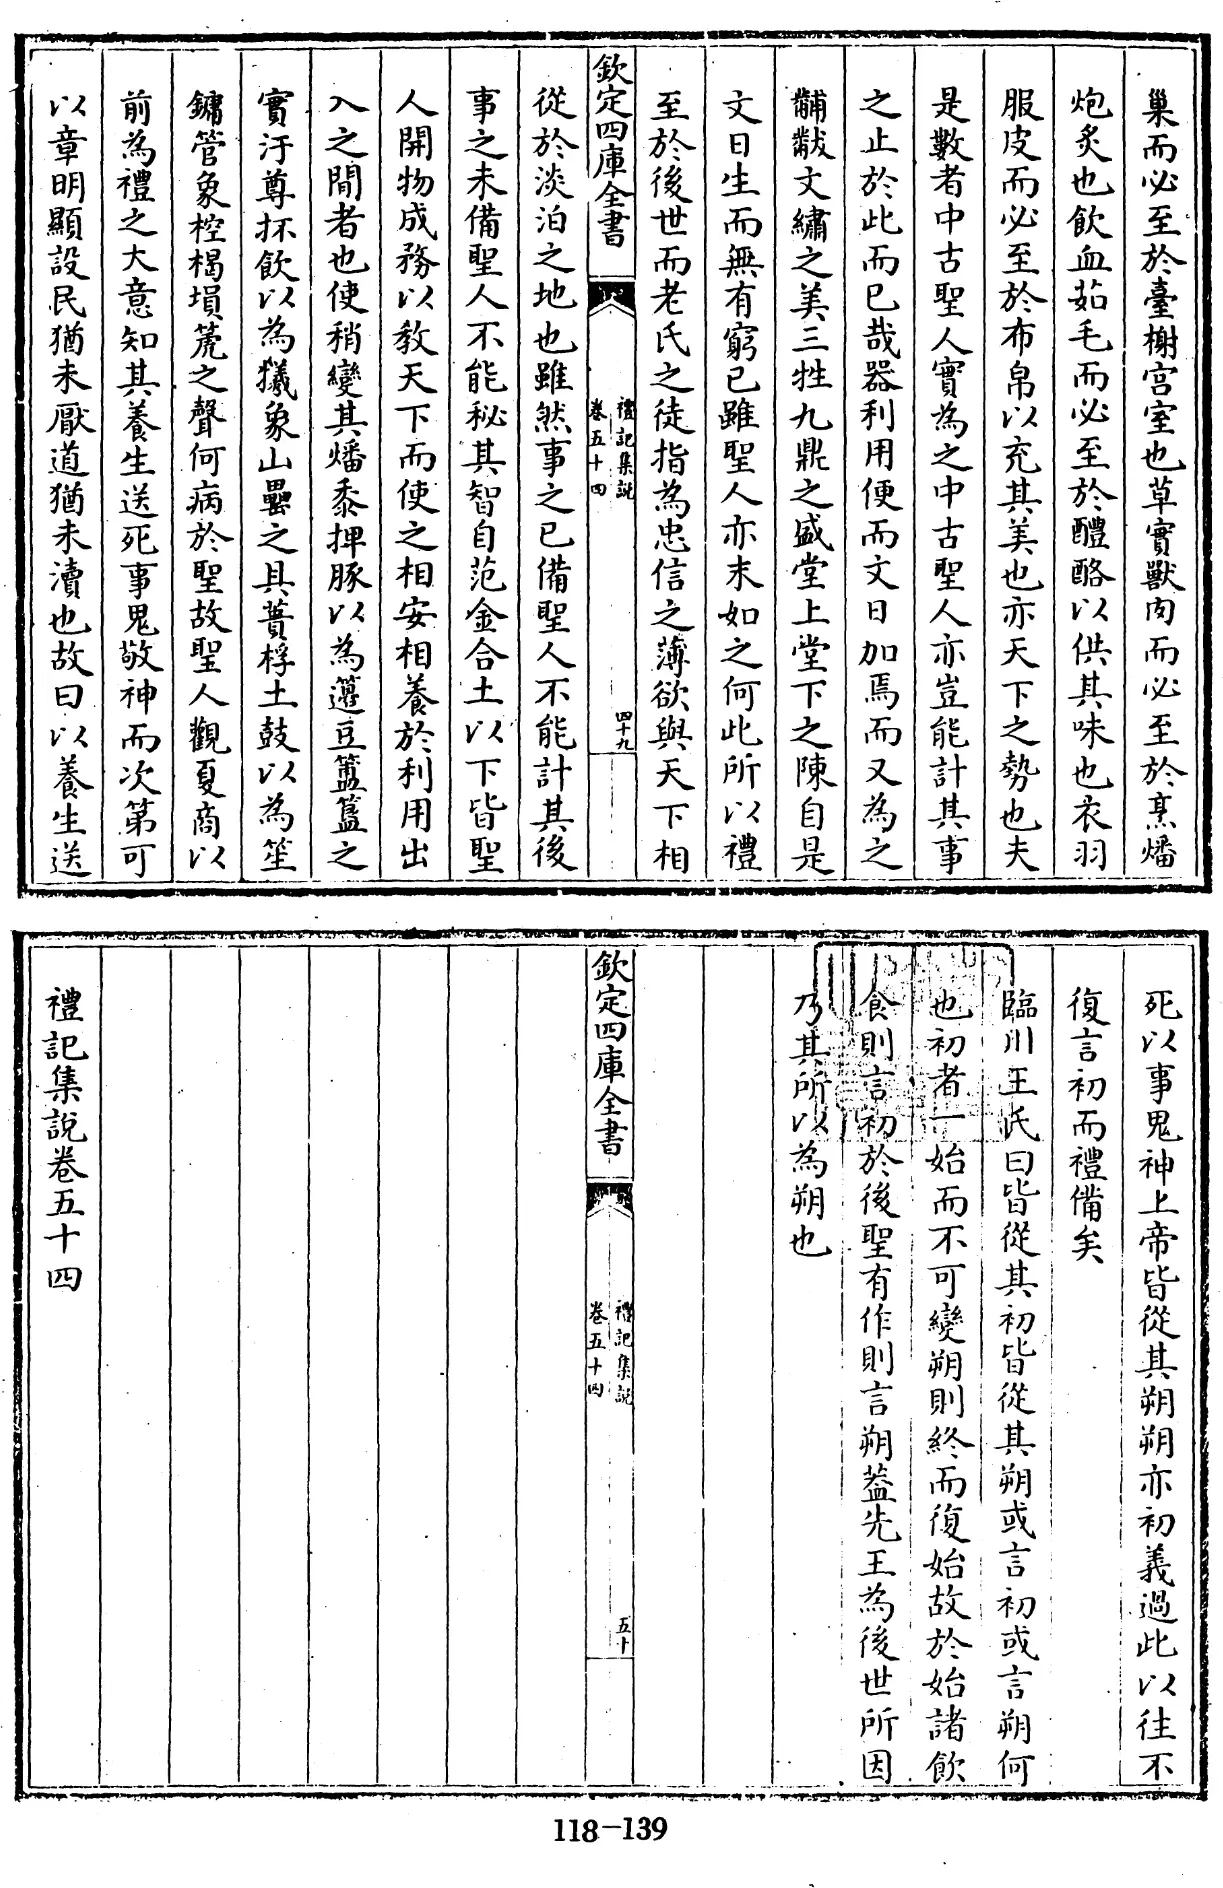 巢而必至於臺榭宫室也草實獸肉而必至於烹燔
炮炙也飲血茹毛而必至於醴酪以供其味也衣羽
服皮而必至於布帛以充其美也亦天下之勢也夫
是數者中古聖人實為之中古聖人亦豈能計其事
之止於此而已哉器利用便而文日加焉而又為之
黼黻文繡之美三牲九鼎之盛堂上堂下之陳自是
文日生而無有窮已雖聖人亦末如之何此所以禮
至於後世而老氏之徒指為忠信之薄欲與天下相
欽定四庫全書
禮記集説
卷五十四
四十九
從於淡泊之地也雖然事之已備聖人不能計其後
事之未備聖人不能秘其智自范金合土以下皆聖
人開物成務以教天下而使之相安相養於利用出
入之間者也使稍變其燔黍押豚以為籩豆簠簋之
實汙尊抔飲以為犧象山罍之具蕢桴土鼓以為笙
鏞管象椌楬塤箎之聲何病於聖故聖人觀夏商以
前為禮之大意知其養生送死事鬼敬神而次第可
以章明顯設民猶未厭道猶未瀆也故曰以養生送
死以事鬼神上帝皆從其朔朔亦初義過此以往不
復言初而禮備矣
臨川王氏曰皆從其初皆從其朔或言初或言朔何
也初者一始而不可變朔則終而復始故於始諸飲
食則言初於後聖有作則言朔葢先王為後世所因
乃其所以為朔也
欽定四庫全書
禮記集説
卷五十四
五十
禮記集説卷五十四
118-139